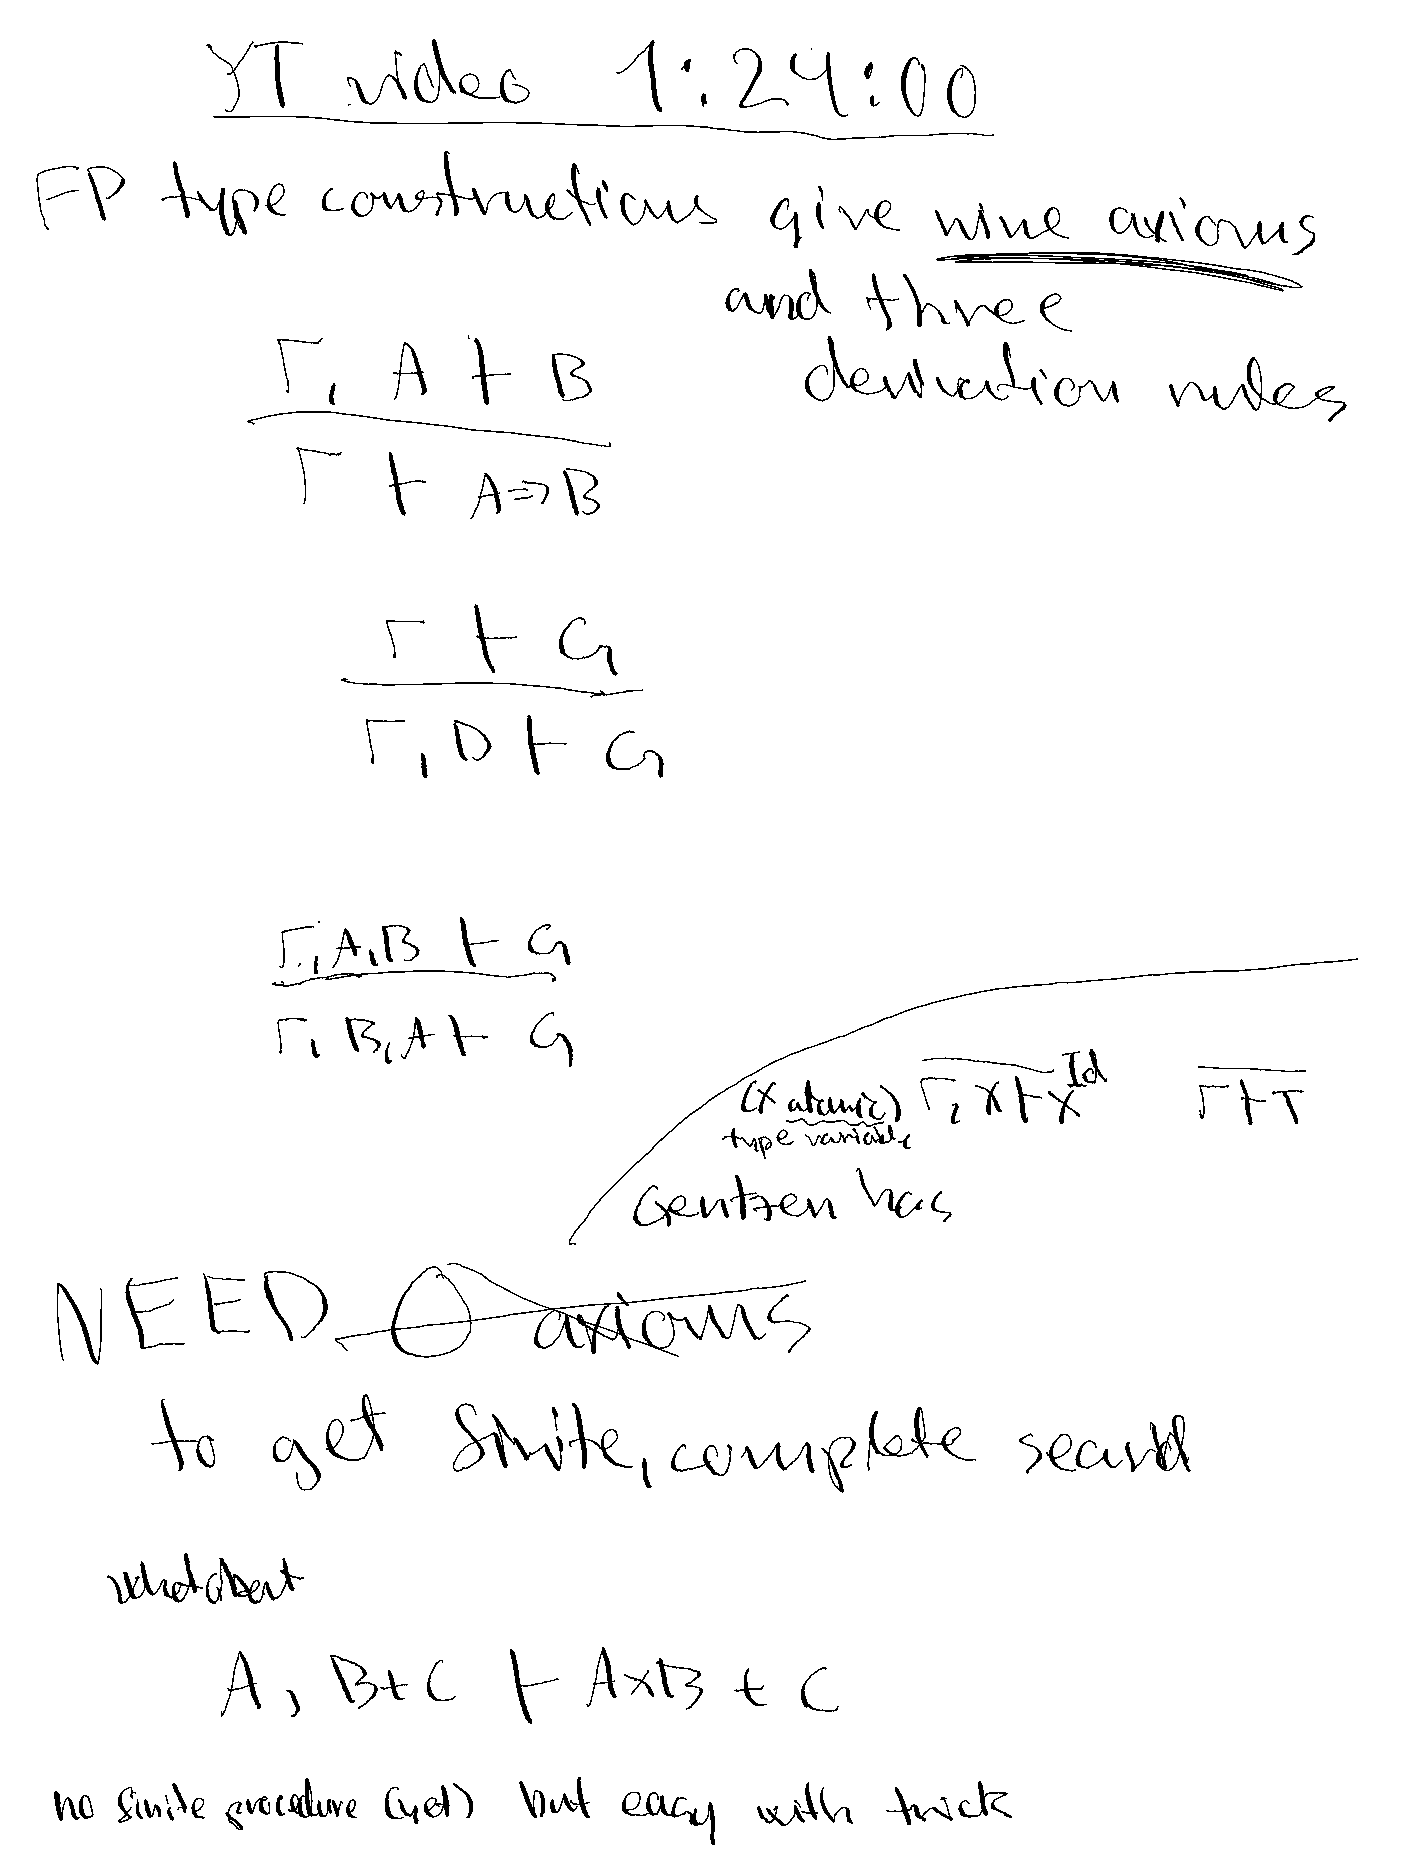 YT video 1:24:00
FP type constructions give nine axioms
and three
derivation rules
Γ, A ⊢ B
Γ ⊢ A⇒B
Γ ⊢ G
Γ, D ⊢ G
Γ, A, B ⊢ G
Γ, B, A ⊢ G
(X atomic) Γ, X ⊢ X Id Γ ⊢ T
type variable
Gentzen has
NEED 0 axioms
to get finite, complete search
what about
A, B+C ⊢ A×B + C
no finite procedure (yet) but easy with trick